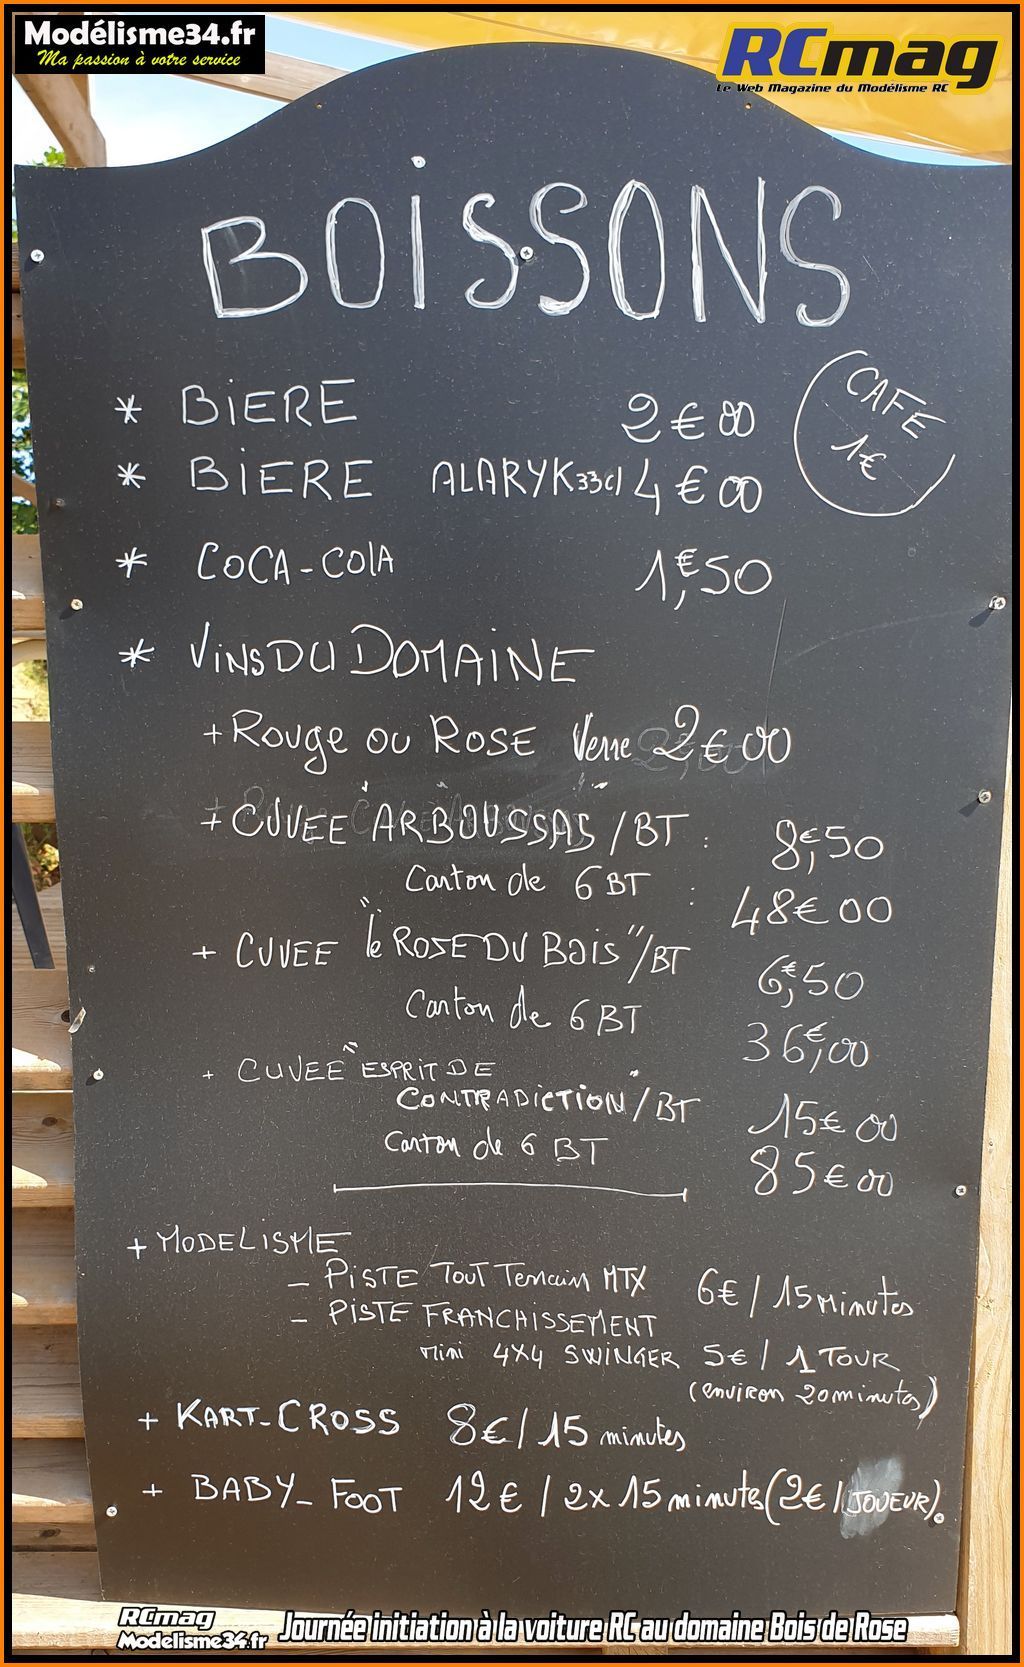 Modélisme34.fr
Ma passion à votre service
RCmag
Le Web Magazine du Modélisme RC
BOISSONS
* BIERE 2€00
CAFE
1€
* BIERE ALARYK 33cl 4€00
* COCA-COlA 1,€50
* VINS DU DOMAINE
+ ROUGE OU ROSE Verre 2€00
+ CUVEE "ARBOUSSAS"/BT : 8,€50
Carton de 6 BT : 48€00
+ CUVEE "le ROSE DU BOIS"/BT 6,€50
Carton de 6 BT 36,€00
+ CUVEE "ESPRIT DE
CONTRADICTION"/BT 15€00
Carton de 6 BT 85€00
+ MODELISME
- PISTE TOUT Terrain MTX 6€/15 minutes
- PISTE FRANCHISSEMENT
mini 4x4 SWINGER 5€/1 TOUR
(environ 20 minutes)
+ KART-CROSS 8€/15 minutes
+ BABY-FOOT 12€/2x15 minutes (2€/JOUEUR).
RCmag
Modelisme34.fr
Journée initiation à la voiture RC au domaine Bois de Rose